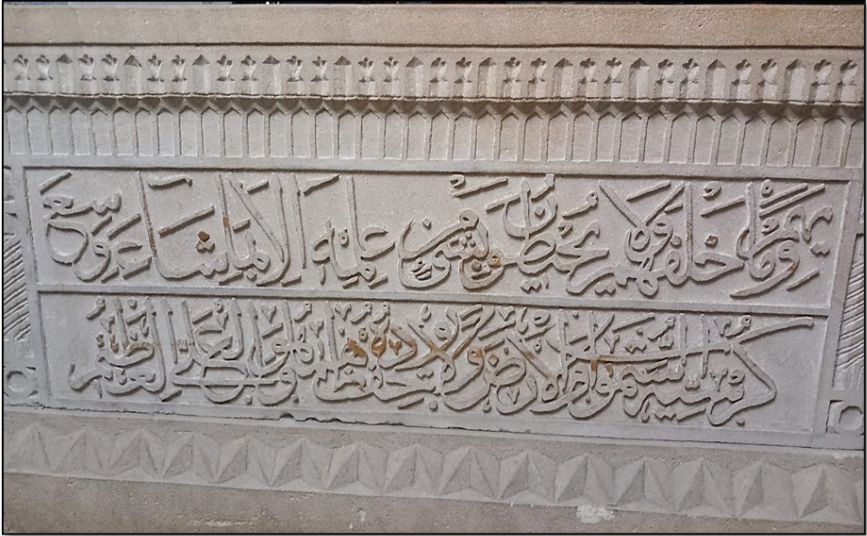 يهم وما خلفهم ولا يحيطون بشئ من علمه الا بما شاء وسع
كرسيه السموات والارض ولا يؤده حفظهما وهو العلي العظيم